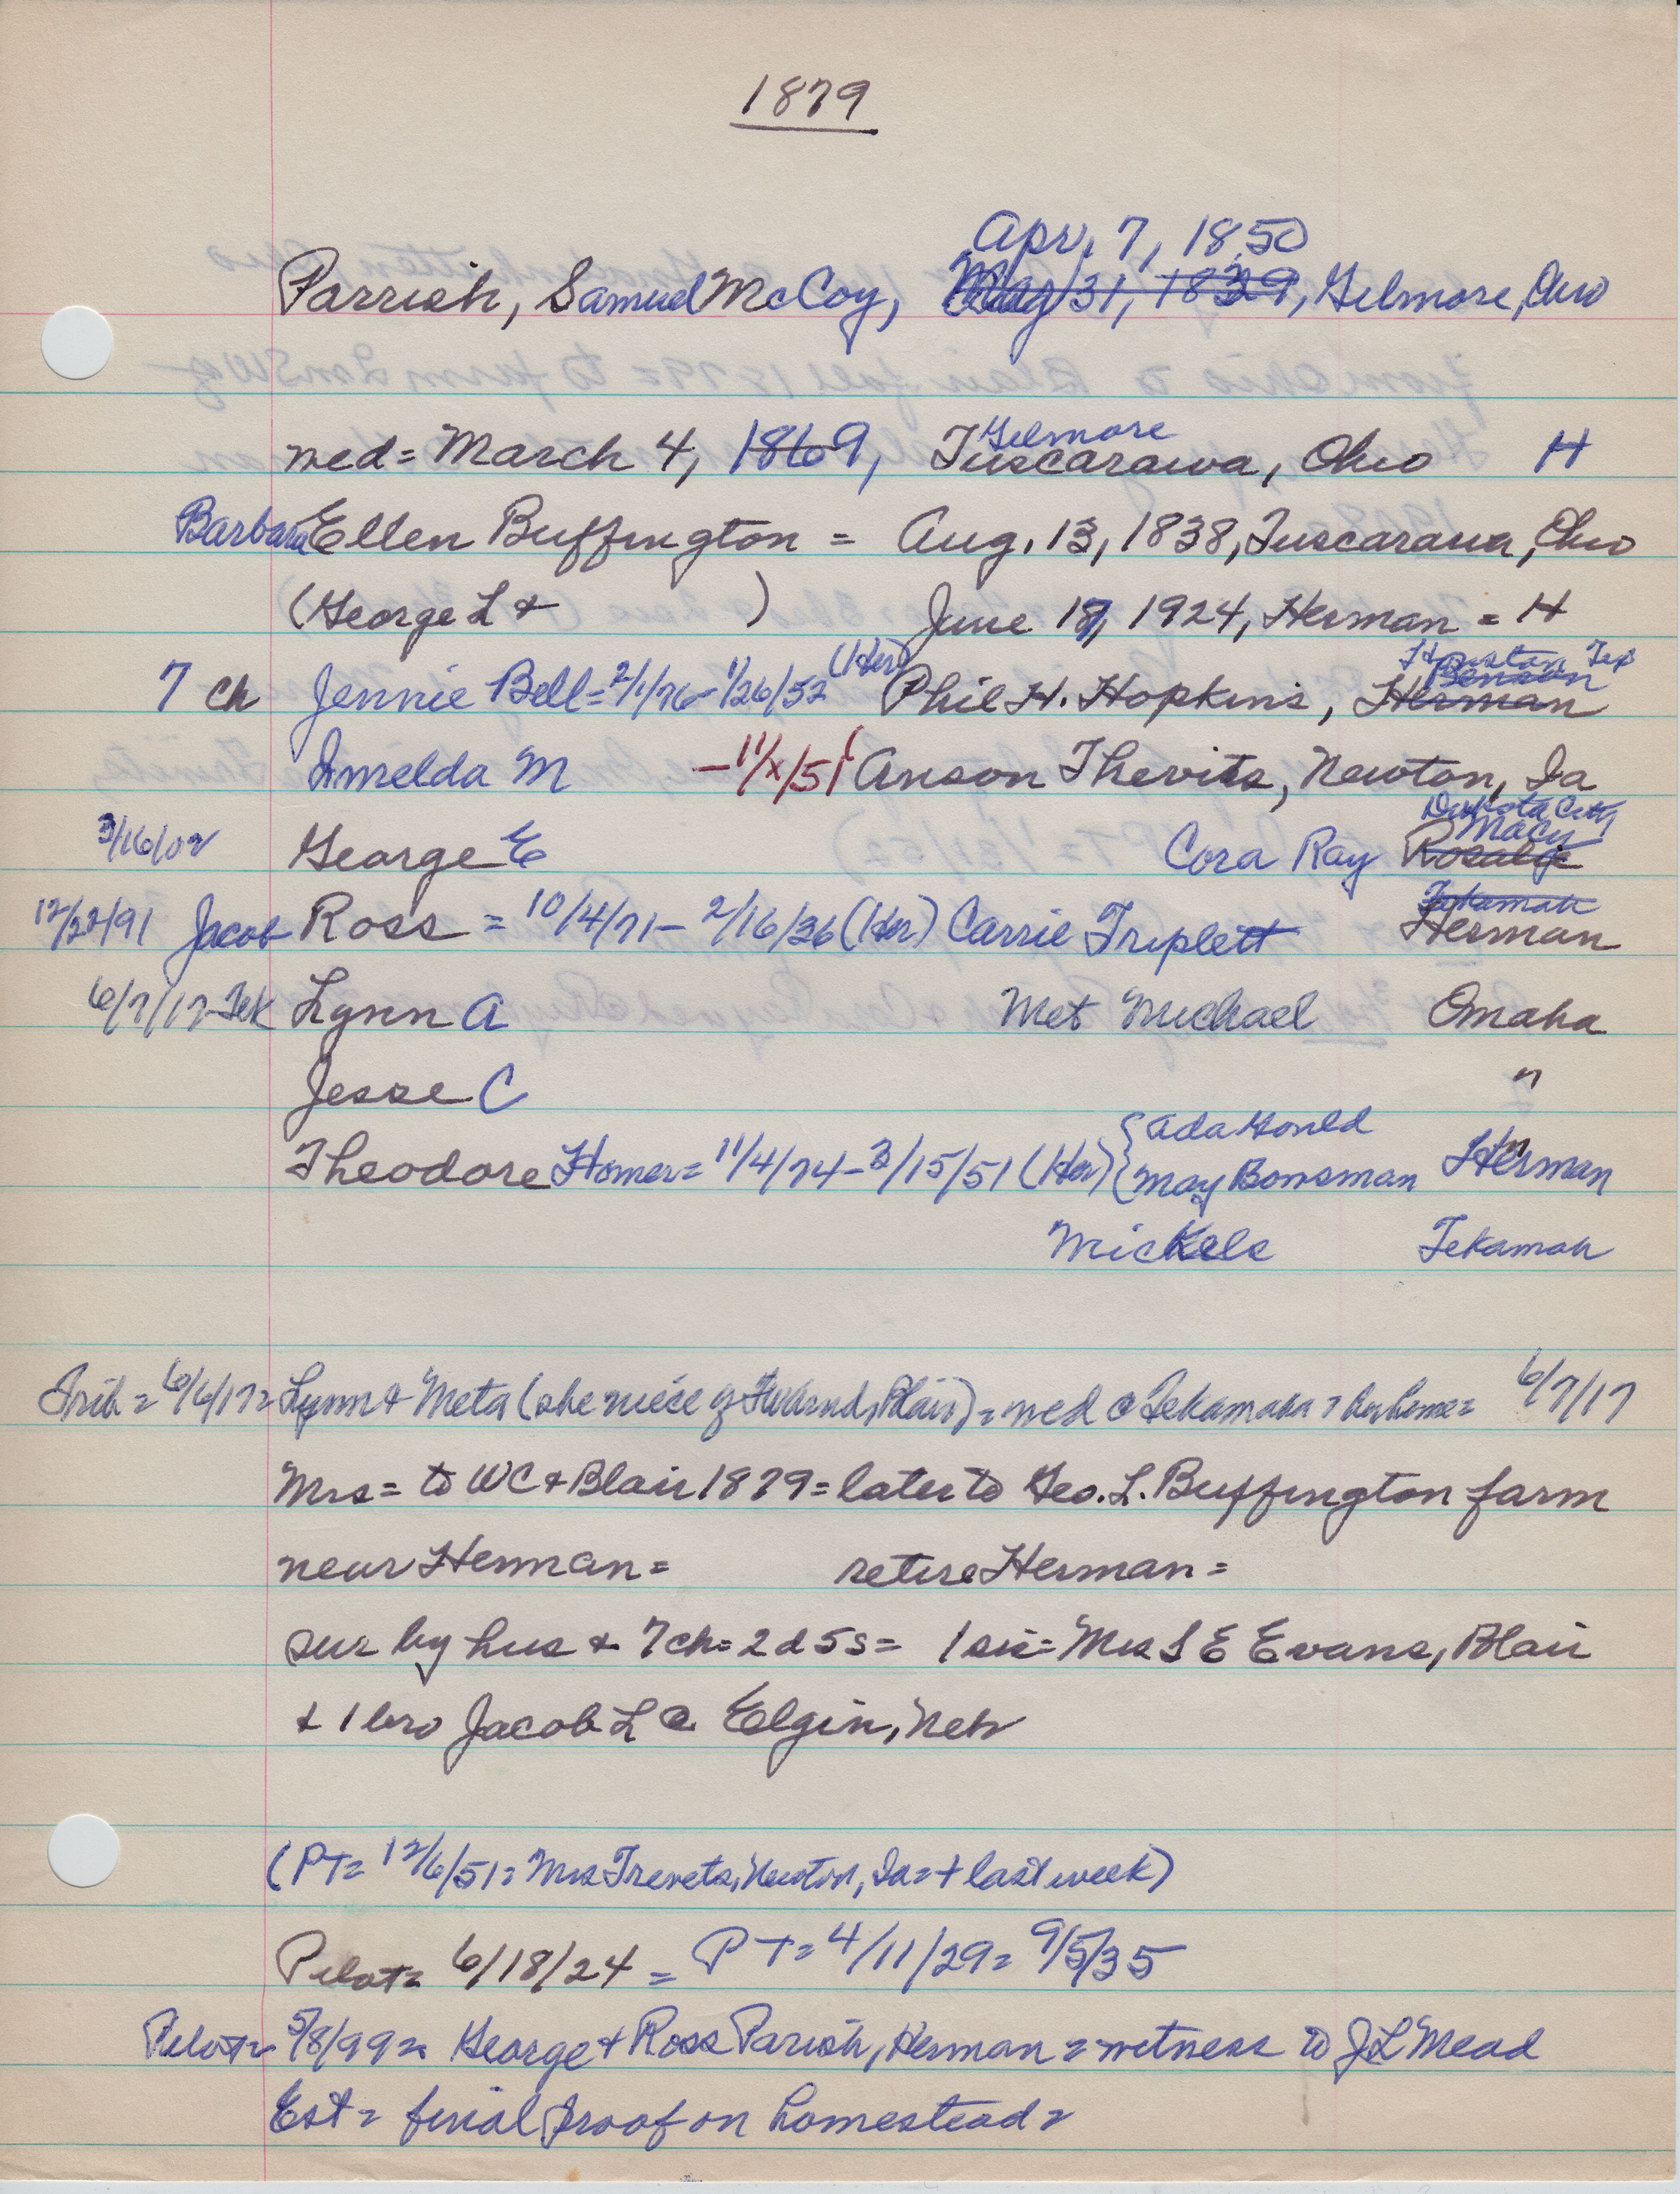 1879
Apr. 7, 1850
Parrish, Samuel McCoy, May 31, 1839, Gilmore, Ohio
Gilmore
wed = March 4, 1869, Tuscarawa, Ohio H
Barbara Ellen Buffington = Aug. 13, 1838, Tuscarawa, Ohio
(George L + ) June 17, 1924, Herman = H
Houston Tex
Benson
7 ch Jennie Bell = 2/1/76 - 1/26/52 (Her) Phil H. Hopkins, Herman
Imelda M - 11/x/51 Anson Thevits, Newton, Ia
Dakota City
Macy
3/16/02 George E Cora Ray Rosalie
Tekamah
12/22/91 Jacob Ross = 10/4/71 - 2/16/36 (Her) Carrie Triplett Herman
6/7/17 - Tek Lynn A Met Michael Omaha
Jesse C "
{ Ada Gould
Theodore Homer = 11/4/74 - 3/15/51 (Her) { May Bonsman Herman
Mickels Tekamah
Trib = 6/6/17 = Lynn + Meta (she niece of Blair) = wed @ Tekamah = her home = 6/7/17
Mrs = to WC + Blair 1879 = later to Geo. L. Buffington farm
near Herman = retire Herman =
sur by hus + 7 ch = 2 d 5 s = 1 sis = Mrs S E Evans, Blair
+ 1 bro Jacob L @ Elgin, Neb
(PT = 12/6/51 = Mrs Trevets, Newton, Ia = + last week)
Pilot = 6/18/24 = PT = 4/11/29 = 9/5/35
Pilot = 5/8/99 = George + Ross Parish, Herman = witness to J L Mead
Est = final proof on homestead =